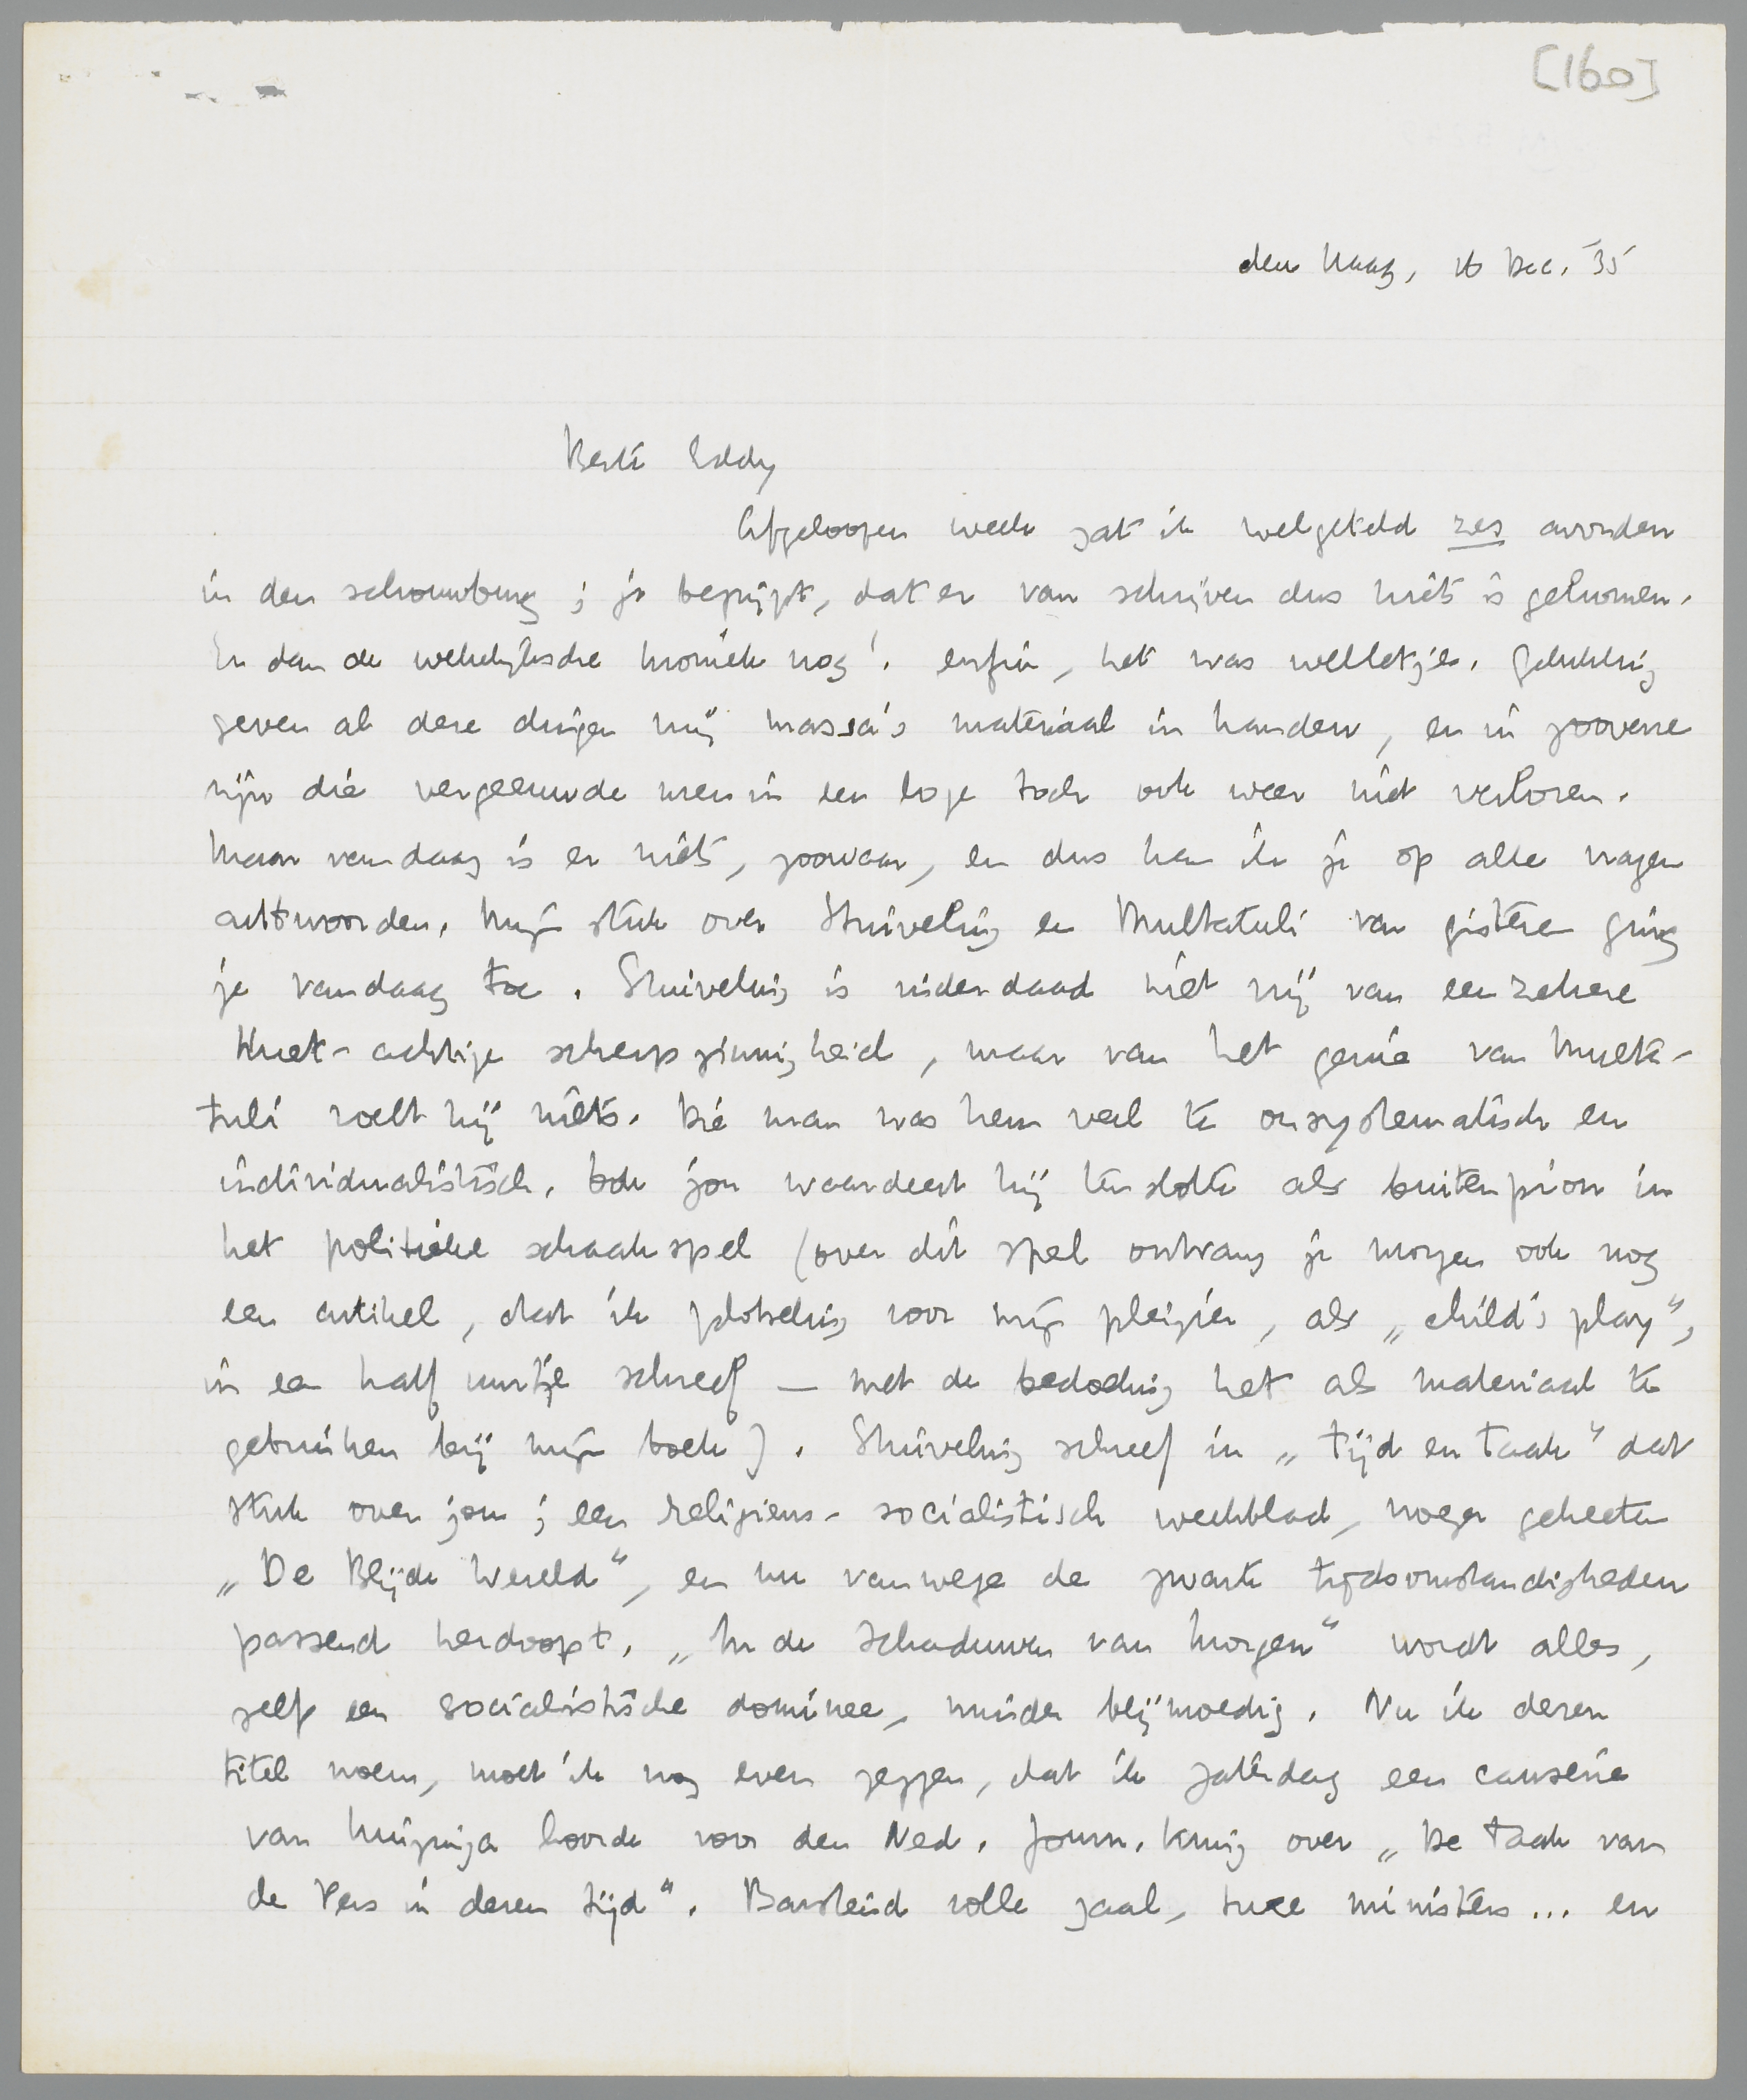 [160]
den Haag, 16 Dec. '35
Beste Eddy
Afgeloopen week zat ik welgeteld zes avonden
in den schouwburg; je begrijpt, dat er van schrijven dus niets is gekomen.
En dan de wekelijksche kroniek nog! enfin, het was welletjes. Gelukkig
geven al deze dingen mij massa's materiaal in handen, en in zooverre
zijn die vergeeuwde uren in een loge toch ook weer niet verloren.
Maar vandaag is er niets, zoowaar, en dus kan ik je op alle vragen
antwoorden. Mijn stuk over Stuiveling en Multatuli van gisteren ging
je vandaag toe. Stuiveling is inderdaad niet vrij van een zekere
Kuet-achtige scherpzinnigheid, maar van het genie van Multa-
tuli voelt hij niets. Die man was hem veel te onsystematisch en
individualistisch. Ook jou waardeert hij tenslotte als buitenpion in
het politieke schaakspel (over dit spel ontvang je morgen ook nog
een artikel, dat ik plotseling voor mijn pleizier, als „child's play",
in een half uurtje schreef — met de bedoeling het als materiaal te
gebruiken bij mijn boek). Stuiveling schreef in „Tijd en Taak" dat
stuk over jou; een religieus-socialistisch weekblad, vroeger geheeten
„De Blijde Wereld", en nu vanwege de zwarte tijdsomstandigheden
passend herdoopt. „In de Schaduwen van Morgen" wordt alles,
zelfs een socialistische dominee, minder blijmoedig. Nu ik dezen
titel noem, moet ik nog even zeggen, dat ik zaterdag een causerie
van Huizinga hoorde voor den Ned. Journ. Kring over „De taak van
de Pers in dezen tijd". Barstend volle zaal, twee ministers... en